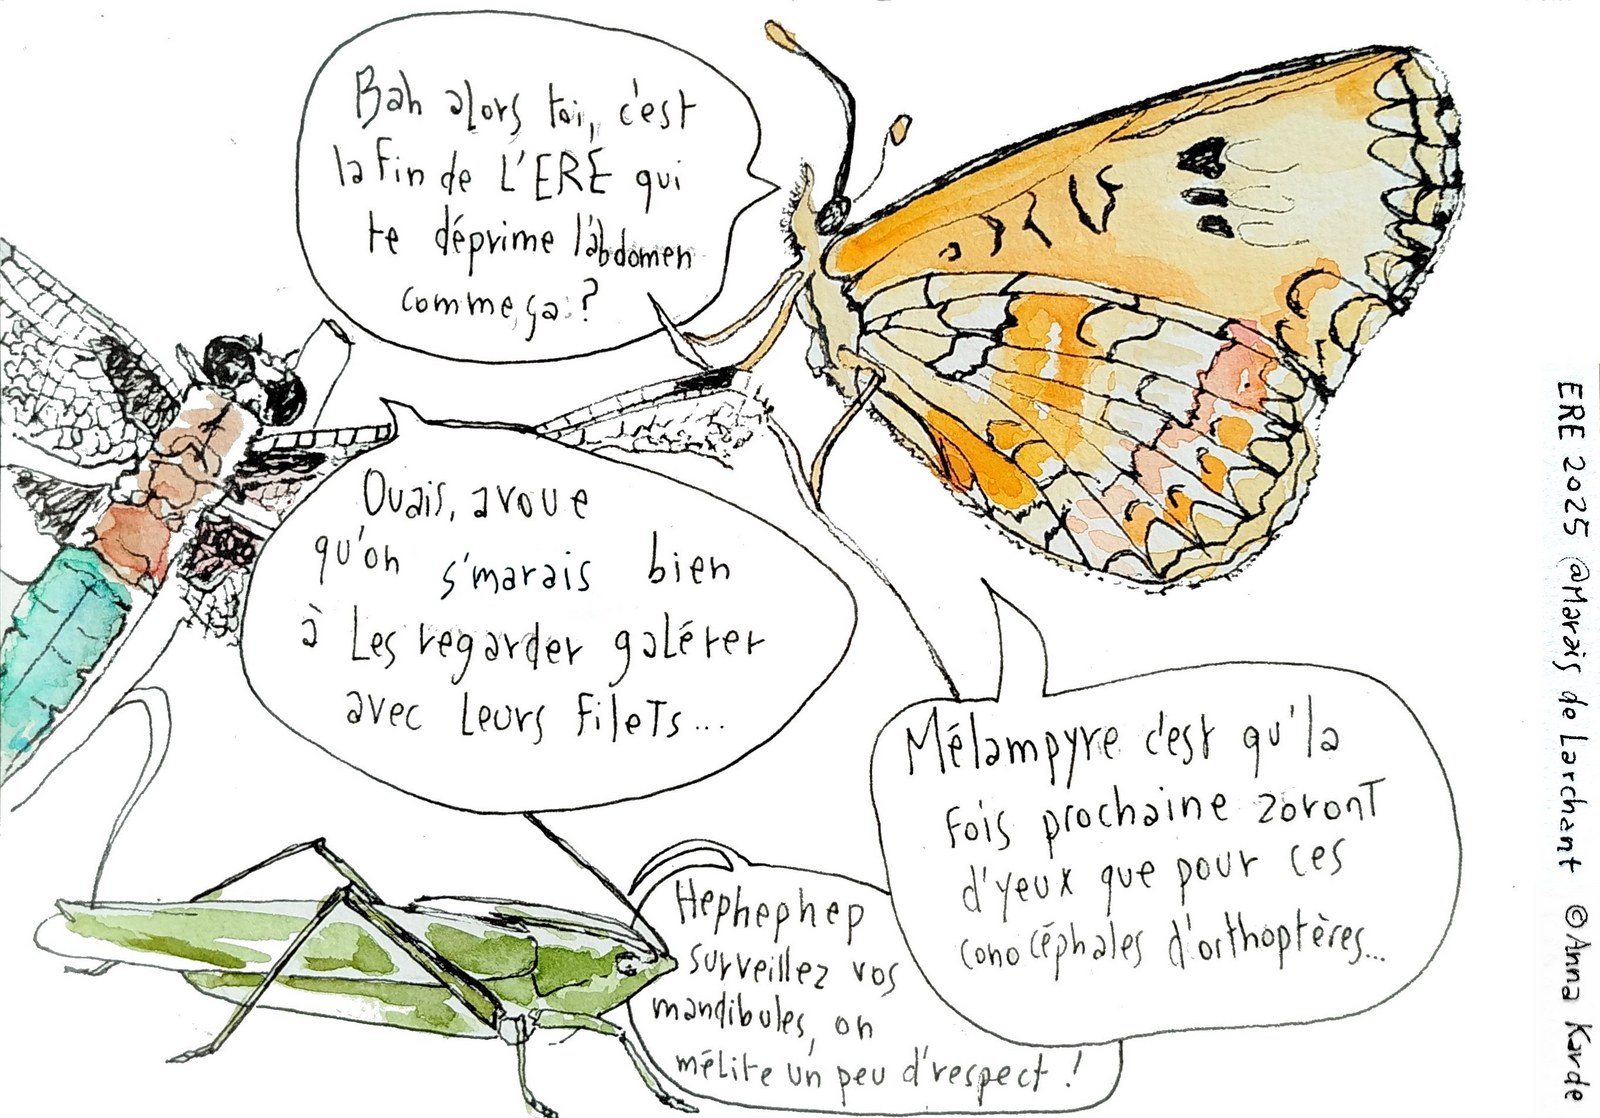 Bah alors toi, c'est
la fin de L'ERE qui
te déprime l'abdomen
comme ça ?
Ouais, avoue
qu'on s'marais bien
à Les regarder galérer
avec Leurs filets...
Mélampyre c'est qu'la
fois prochaine zoront
d'yeux que pour ces
conocéphales d'orthoptères...
Hephephep
surveillez vos
mandibules, on
mélite un peu d'respect !
ERE 2025 @Marais de Larchant ©Anna Karde